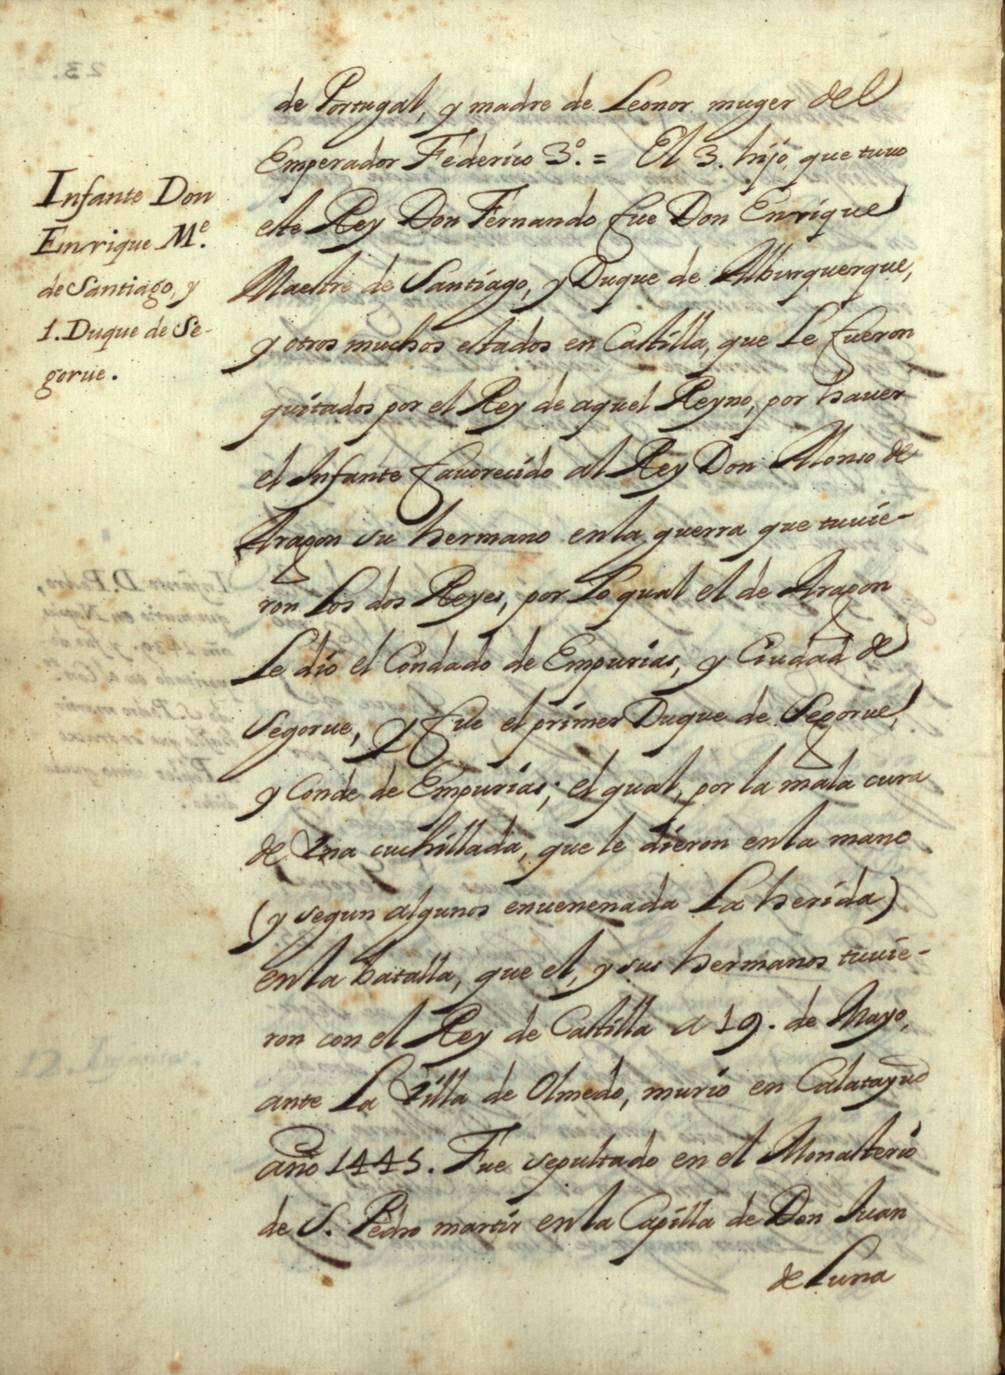 de Portugal, y madre de Leonor muger del
Emperador Federico 3º. = El 3. hijo, que tuuo
este Rey Don Fernando fue Don Enrique
Maestre de Santiago, y Duque de Alburquerque,
y otros muchos estados en Castilla, que le fueron
quitados por el Rey de aquel Reyno, por hauer
el Infante fauorecido al Rey Don Alonso de
Aragon su hermano en la guerra que tuuie-
ron los dos Reyes, por lo qual el de Aragon
le dio el Condado de Empurias, y Ciudad de
Segorue, y fue el primer Duque de Segorue,
y Conde de Empurias; el qual, por la mala cura
de Vna cuchillada, que le dieron en la mano
(y segun algunos enuenenada la herida)
en la batalla, que el, y sus hermanos tuuie-
ron con el Rey de Castilla a 19. de Mayo,
ante la Villa de Olmedo, murio en Calatayud
año 1445. Fue sepultado en el Monasterio
de S. Pedro martir en la Capilla de Don Juan
de Luna
Infante Don
Enrique Mᵉ.
de Santiago, y
1. Duque de Se-
gorue.